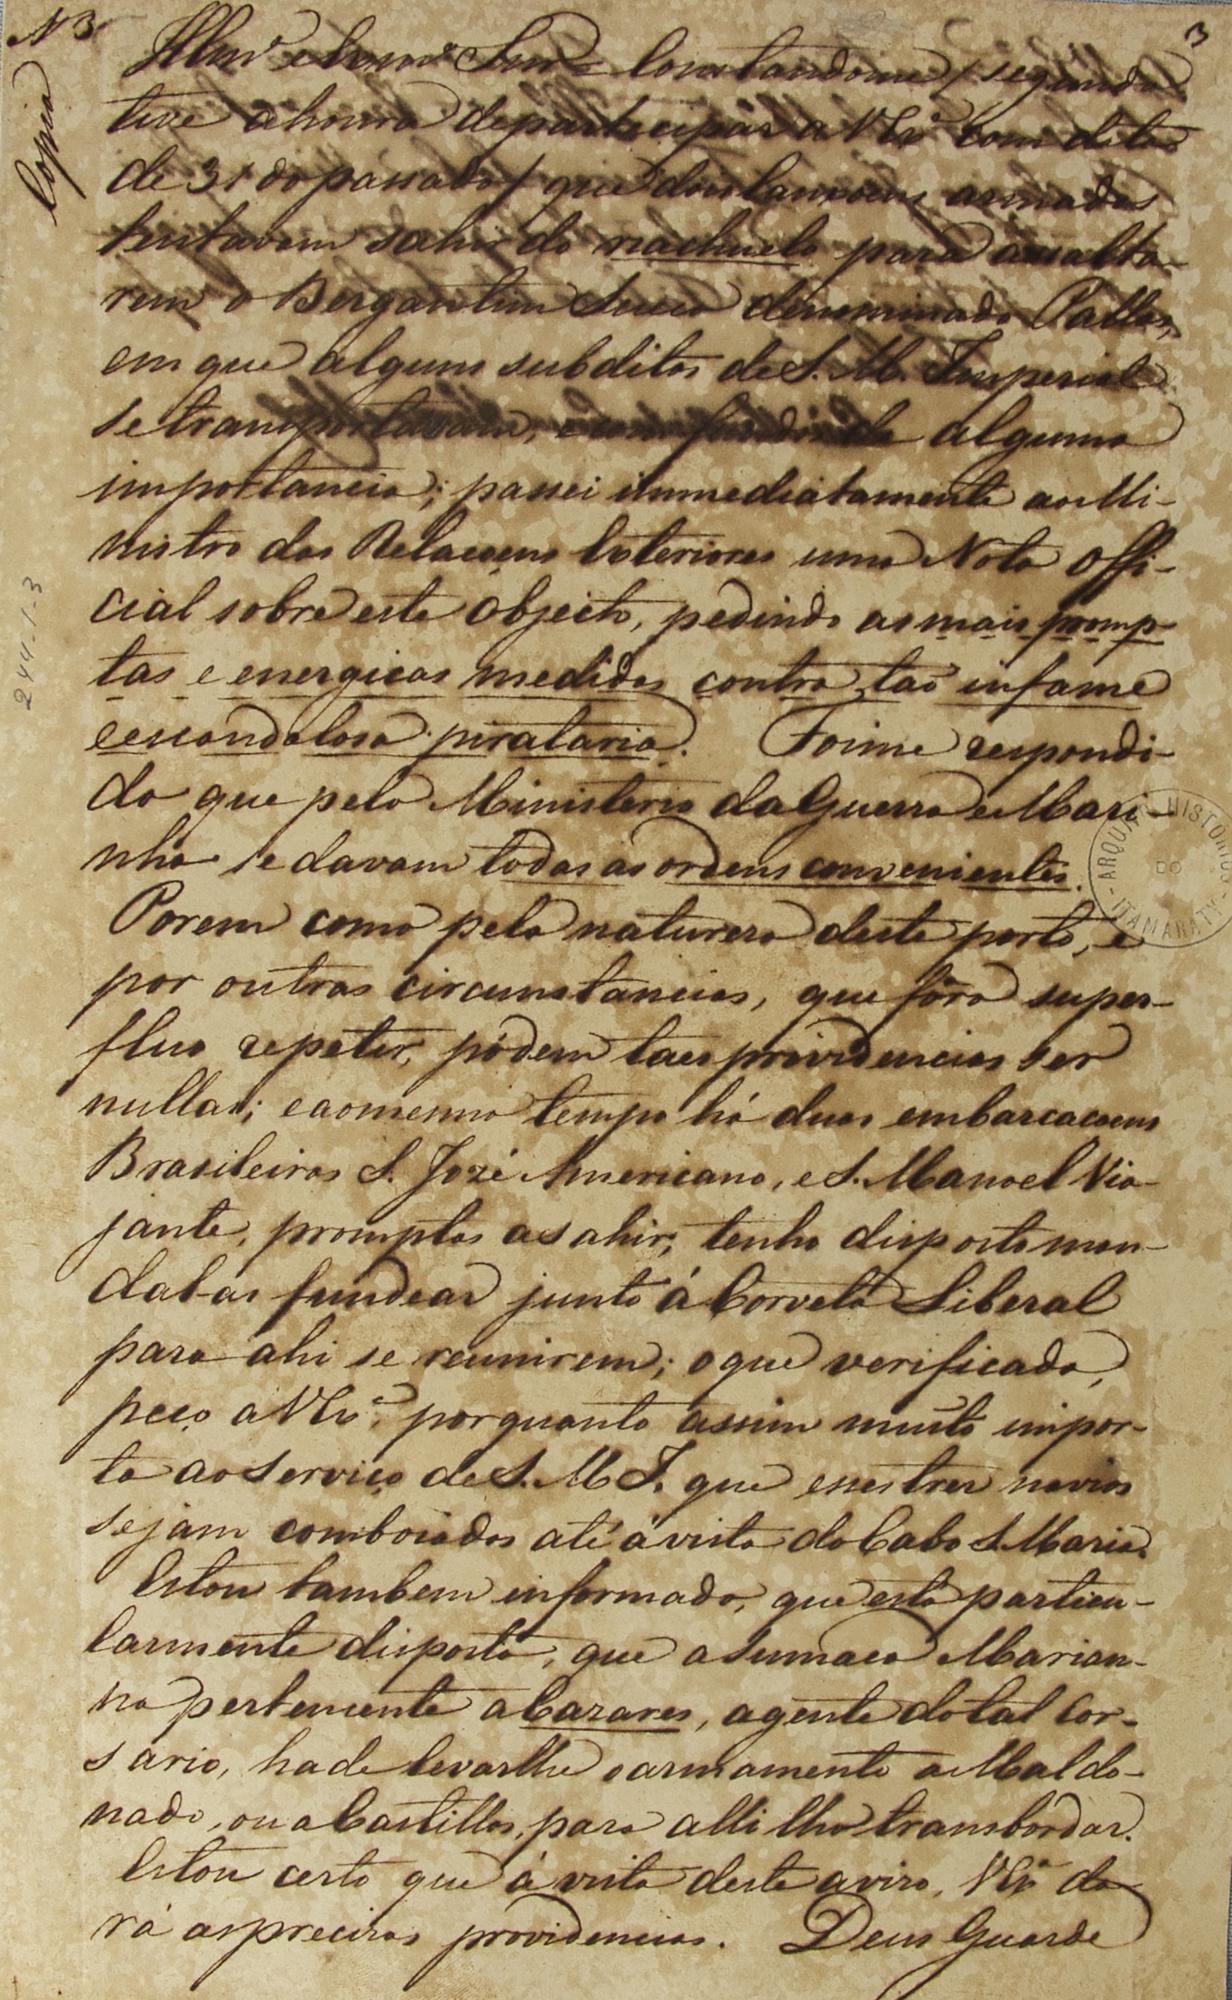 N 3
3
Copia
Illmo e Exmo Snr = Constandome / segundo
tive a honra departicipar a VExa com data
de 31 do passado / que dois lanxoens armados
tentavam sahir do riachuelo para assalta-
rem o Bergantim Sueco denominado Pallas,
em que alguns subditos de S. M. Imperial
se transportavam, e com fundos de alguma
importancia; passei immediatamente ao Mi-
nistro das Relaçoens Exteriores uma Nota Offi-
cial sobre este objecto, pedindo as mais promp-
tas e energicas medidas contra tão infame
e escandalosa pirataria. Foime respondi-
do que pelo Ministerio da Guerra e Mari-
nha se davam todas as ordens convenientes.
Porem como pela natureza deste porto, e
por outras circumstancias, que fôra super-
fluo repetir, pódem taes providencias ser
nullas; e ao mesmo tempo há duas embarcaçoens
Brasileiras S. José Americano, e S. Manoel Via-
jante, promptas a sahir; tenho disposto man-
dal-as fundear junto á Corveta Liberal
para ahi se reunirem; o que verificado,
peço a VExa, porquanto assim muito impor-
ta ao serviço de S. M. I. que esses tres navios
sejam comboiados até á vista do Cabo S. Maria.
Estou tambem informado, que está particu-
larmente disposto, que a sumaca Marian-
na pertencente a Cazares, agente do tal Cor-
sario, ha de levarlhe o armamento a Maldo-
nado, ou a Castillos, para alli lho transbordar.
Estou certo que á vista deste aviso, VExa da-
rá as precisas providencias. Deus Guarde
244-1-3
ARQUIVO HISTORICO
DO
ITAMARATY